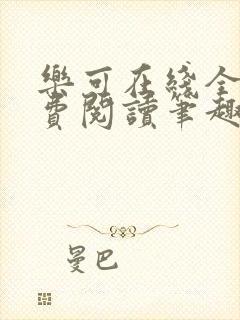 樂可在綫全
費閱讀筆趣
曼巴